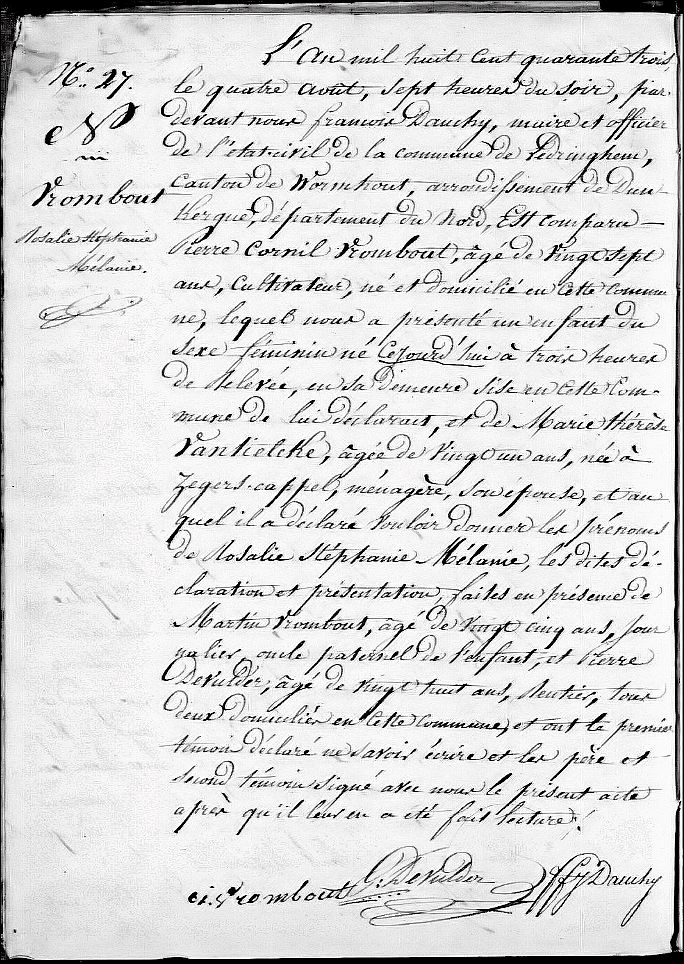 N° 27.
N
Vrombout
Rosalie Stéphanie
Mélanie.
L'An mil huit cent quarante trois,
le quatre août, sept heures du soir, par-
devant nous françois Dauchy, maire et officier
de l'état-civil de la commune de Ledringhem,
Canton de Wormhout, arrondissement de Dun-
kerque, département du Nord, Est comparu
Pierre Cornil Vrombout, âgé de vingt sept
ans, Cultivateur, né et domicilié en cette commu-
ne, lequel nous a présenté un enfant du
sexe féminin né Cejourd'hui à trois heures
de Relevée, en sa demeure sise en cette Com-
mune de lui déclarant, et de Marie thérèse
Vantielcke, âgée de vingt un ans, née à
Zegers-cappel, ménagère, son épouse, et au
quel il a déclaré vouloir donner les prénoms
de Rosalie Stéphanie Mélanie, les dites dé-
claration et présentation, faites en présence de
Martin Vrombout, âgé de vingt cinq ans, Jour
nalier, oncle paternel de l'enfant, et Pierre
DeVulder, âgé de vingt huit ans, Rentier, tous
deux domiciliés en cette commune, et ont le premier
témoin déclaré ne savoir écrire et les père et
second témoin signé avec nous le présent acte
après qu'il leur en a été fait lecture.
Vrombout P. DeVulder ff Dauchy